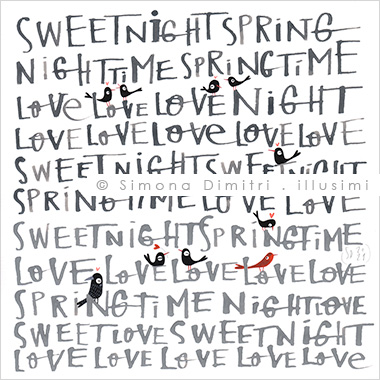 SWEETNIGHTSPRING
NIGHTTIMESPRINGTIME
LOVE LOVE LOVENIGHT
LOVE LOVE LOVE LOVE LOVE
SWEETNIGHTSWEETNIGHT
© Simona Dimitri . illusimi
SPRINGTIME LOVE LOVE
SWEETNIGHTSPRINGTIME
LOVE LOVE LOVE LOVE LOVE
SPRINGTIME NIGHTLOVE
SWEETLOVE SWEETNIGHT
LOVE LOVE LOVE LOVE LOVE LOVE